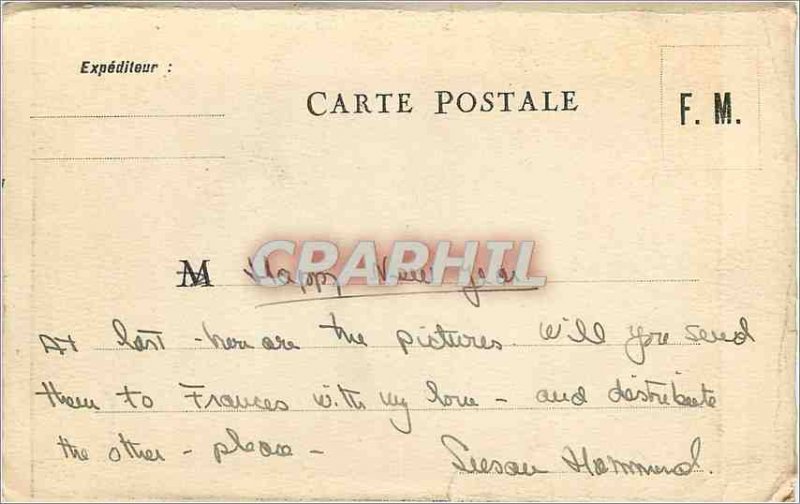 Expéditeur :
CARTE POSTALE
F. M.
CRAPHIL
M Happy New year
At last - here are the pictures. Will you send
them to Frances with my love - and distribute
the other - please -
Susan Hammond.